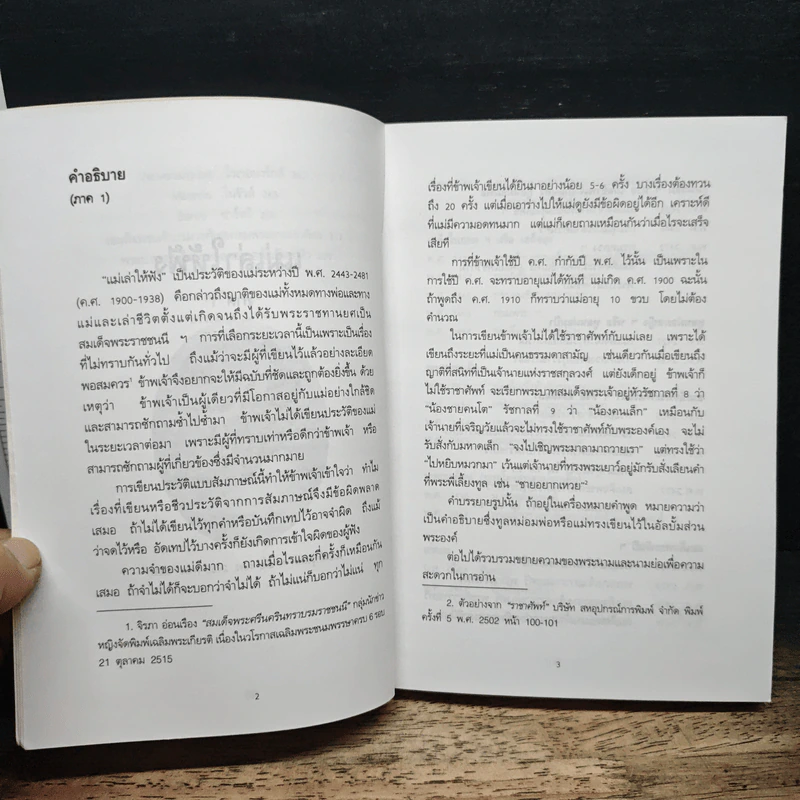 คำอธิบาย
(ภาค 1)
"แม่เล่าให้ฟัง" เป็นประวัติของแม่ระหว่างปี พ.ศ. 2443-2481
(ค.ศ. 1900-1938) คือกล่าวถึงญาติของแม่ทั้งหมดทางพ่อและทาง
แม่และเล่าชีวิตตั้งแต่เกิดจนถึงได้รับพระราชทานยศเป็น
สมเด็จพระราชชนนี ฯ การที่เลือกระยะเวลานี้เป็นเพราะเป็นเรื่อง
ที่ไม่ทราบกันทั่วไป ถึงแม้ว่าจะมีผู้ที่เขียนไว้แล้วอย่างละเอียด
พอสมควร¹ ข้าพเจ้าจึงอยากจะให้มีฉบับที่ชัดและถูกต้องยิ่งขึ้น ด้วย
เหตุว่า ข้าพเจ้าเป็นผู้เดียวที่มีโอกาสอยู่กับแม่อย่างใกล้ชิด
และสามารถซักถามซ้ำไปซ้ำมา ข้าพเจ้าไม่ได้เขียนประวัติของแม่
ในระยะเวลาต่อมา เพราะมีผู้ที่ทราบเท่าหรือดีกว่าข้าพเจ้า หรือ
สามารถซักถามผู้ที่เกี่ยวข้องซึ่งมีจำนวนมากมาย
การเขียนประวัติแบบสัมภาษณ์นี้ทำให้ข้าพเจ้าเข้าใจว่า ทำไม
เรื่องที่เขียนหรือชีวประวัติจากการสัมภาษณ์จึงมีข้อผิดพลาด
เสมอ ถ้าไม่ได้เขียนไว้ทุกคำหรือบันทึกเทปไว้อาจจำผิด ถึงแม้
ว่าจดไว้หรือ อัดเทปไว้บางครั้งก็ยังเกิดการเข้าใจผิดของผู้ฟัง
ความจำของแม่ดีมาก ถามเมื่อไรและกี่ครั้งก็เหมือนกัน
เสมอ ถ้าจำไม่ได้ก็จะบอกว่าจำไม่ได้ ถ้าไม่แน่ก็บอกว่าไม่แน่ ทุก
1. จิรภา อ่อนเรือง "สมเด็จพระศรีนครินทราบรมราชชนนี" กลุ่มนักข่าว
หญิงจัดพิมพ์เฉลิมพระเกียรติ เนื่องในวโรกาสเฉลิมพระชนมพรรษาครบ 6 รอบ
21 ตุลาคม 2515
2
เรื่องที่ข้าพเจ้าเขียนได้ยินมาอย่างน้อย 5-6 ครั้ง บางเรื่องต้องทวน
ถึง 20 ครั้ง แต่เมื่อเอาร่างไปให้แม่ดูยังมีข้อผิดอยู่ได้อีก เคราะห์ดี
ที่แม่มีความอดทนมาก แต่แม่ก็เคยถามเหมือนกันว่าเมื่อไรจะเสร็จ
เสียที
การที่ข้าพเจ้าใช้ปี ค.ศ. กำกับปี พ.ศ. ไว้นั้น เป็นเพราะใน
การใช้ปี ค.ศ. จะทราบอายุแม่ได้ทันที แม่เกิด ค.ศ. 1900 ฉะนั้น
ถ้าพูดถึง ค.ศ. 1910 ก็ทราบว่าแม่อายุ 10 ขวบ โดยไม่ต้อง
คำนวณ
ในการเขียนข้าพเจ้าไม่ได้ใช้ราชาศัพท์กับแม่เลย เพราะได้
เขียนถึงระยะที่แม่เป็นคนธรรมดาสามัญ เช่นเดียวกันเมื่อเขียนถึง
ญาติที่สนิทที่เป็นเจ้านายแห่งราชสกุลวงศ์ แต่ยังเด็กอยู่ ข้าพเจ้าก็
ไม่ใช้ราชาศัพท์ จะเรียกพระบาทสมเด็จพระเจ้าอยู่หัวรัชกาลที่ 8 ว่า
"น้องชายคนโต" รัชกาลที่ 9 ว่า "น้องคนเล็ก" เหมือนกับ
เจ้านายที่เจริญวัยแล้วจะไม่ทรงใช้ราชาศัพท์กับพระองค์เอง จะไม่
รับสั่งกับมหาดเล็ก "จงไปเชิญพระมาลามาถวายเรา" แต่ทรงใช้ว่า
"ไปหยิบหมวกมา" เว้นแต่เจ้านายที่ทรงพระเยาว์อยู่มักรับสั่งเลียนคำ
ที่พระพี่เลี้ยงทูล เช่น "ชายอยากเหวย"²
คำบรรยายรูปนั้น ถ้าอยู่ในเครื่องหมายคำพูด หมายความว่า
เป็นคำอธิบายซึ่งทูลหม่อมพ่อหรือแม่ทรงเขียนไว้ในอัลบั้มส่วน
พระองค์
ต่อไปได้รวบรวมขยายความของพระนามและนามย่อเพื่อความ
สะดวกในการอ่าน
2. ตัวอย่างจาก "ราชาศัพท์" บริษัท สหอุปกรณ์การพิมพ์ จำกัด พิมพ์
ครั้งที่ 5 พ.ศ. 2502 หน้า 100-101
3